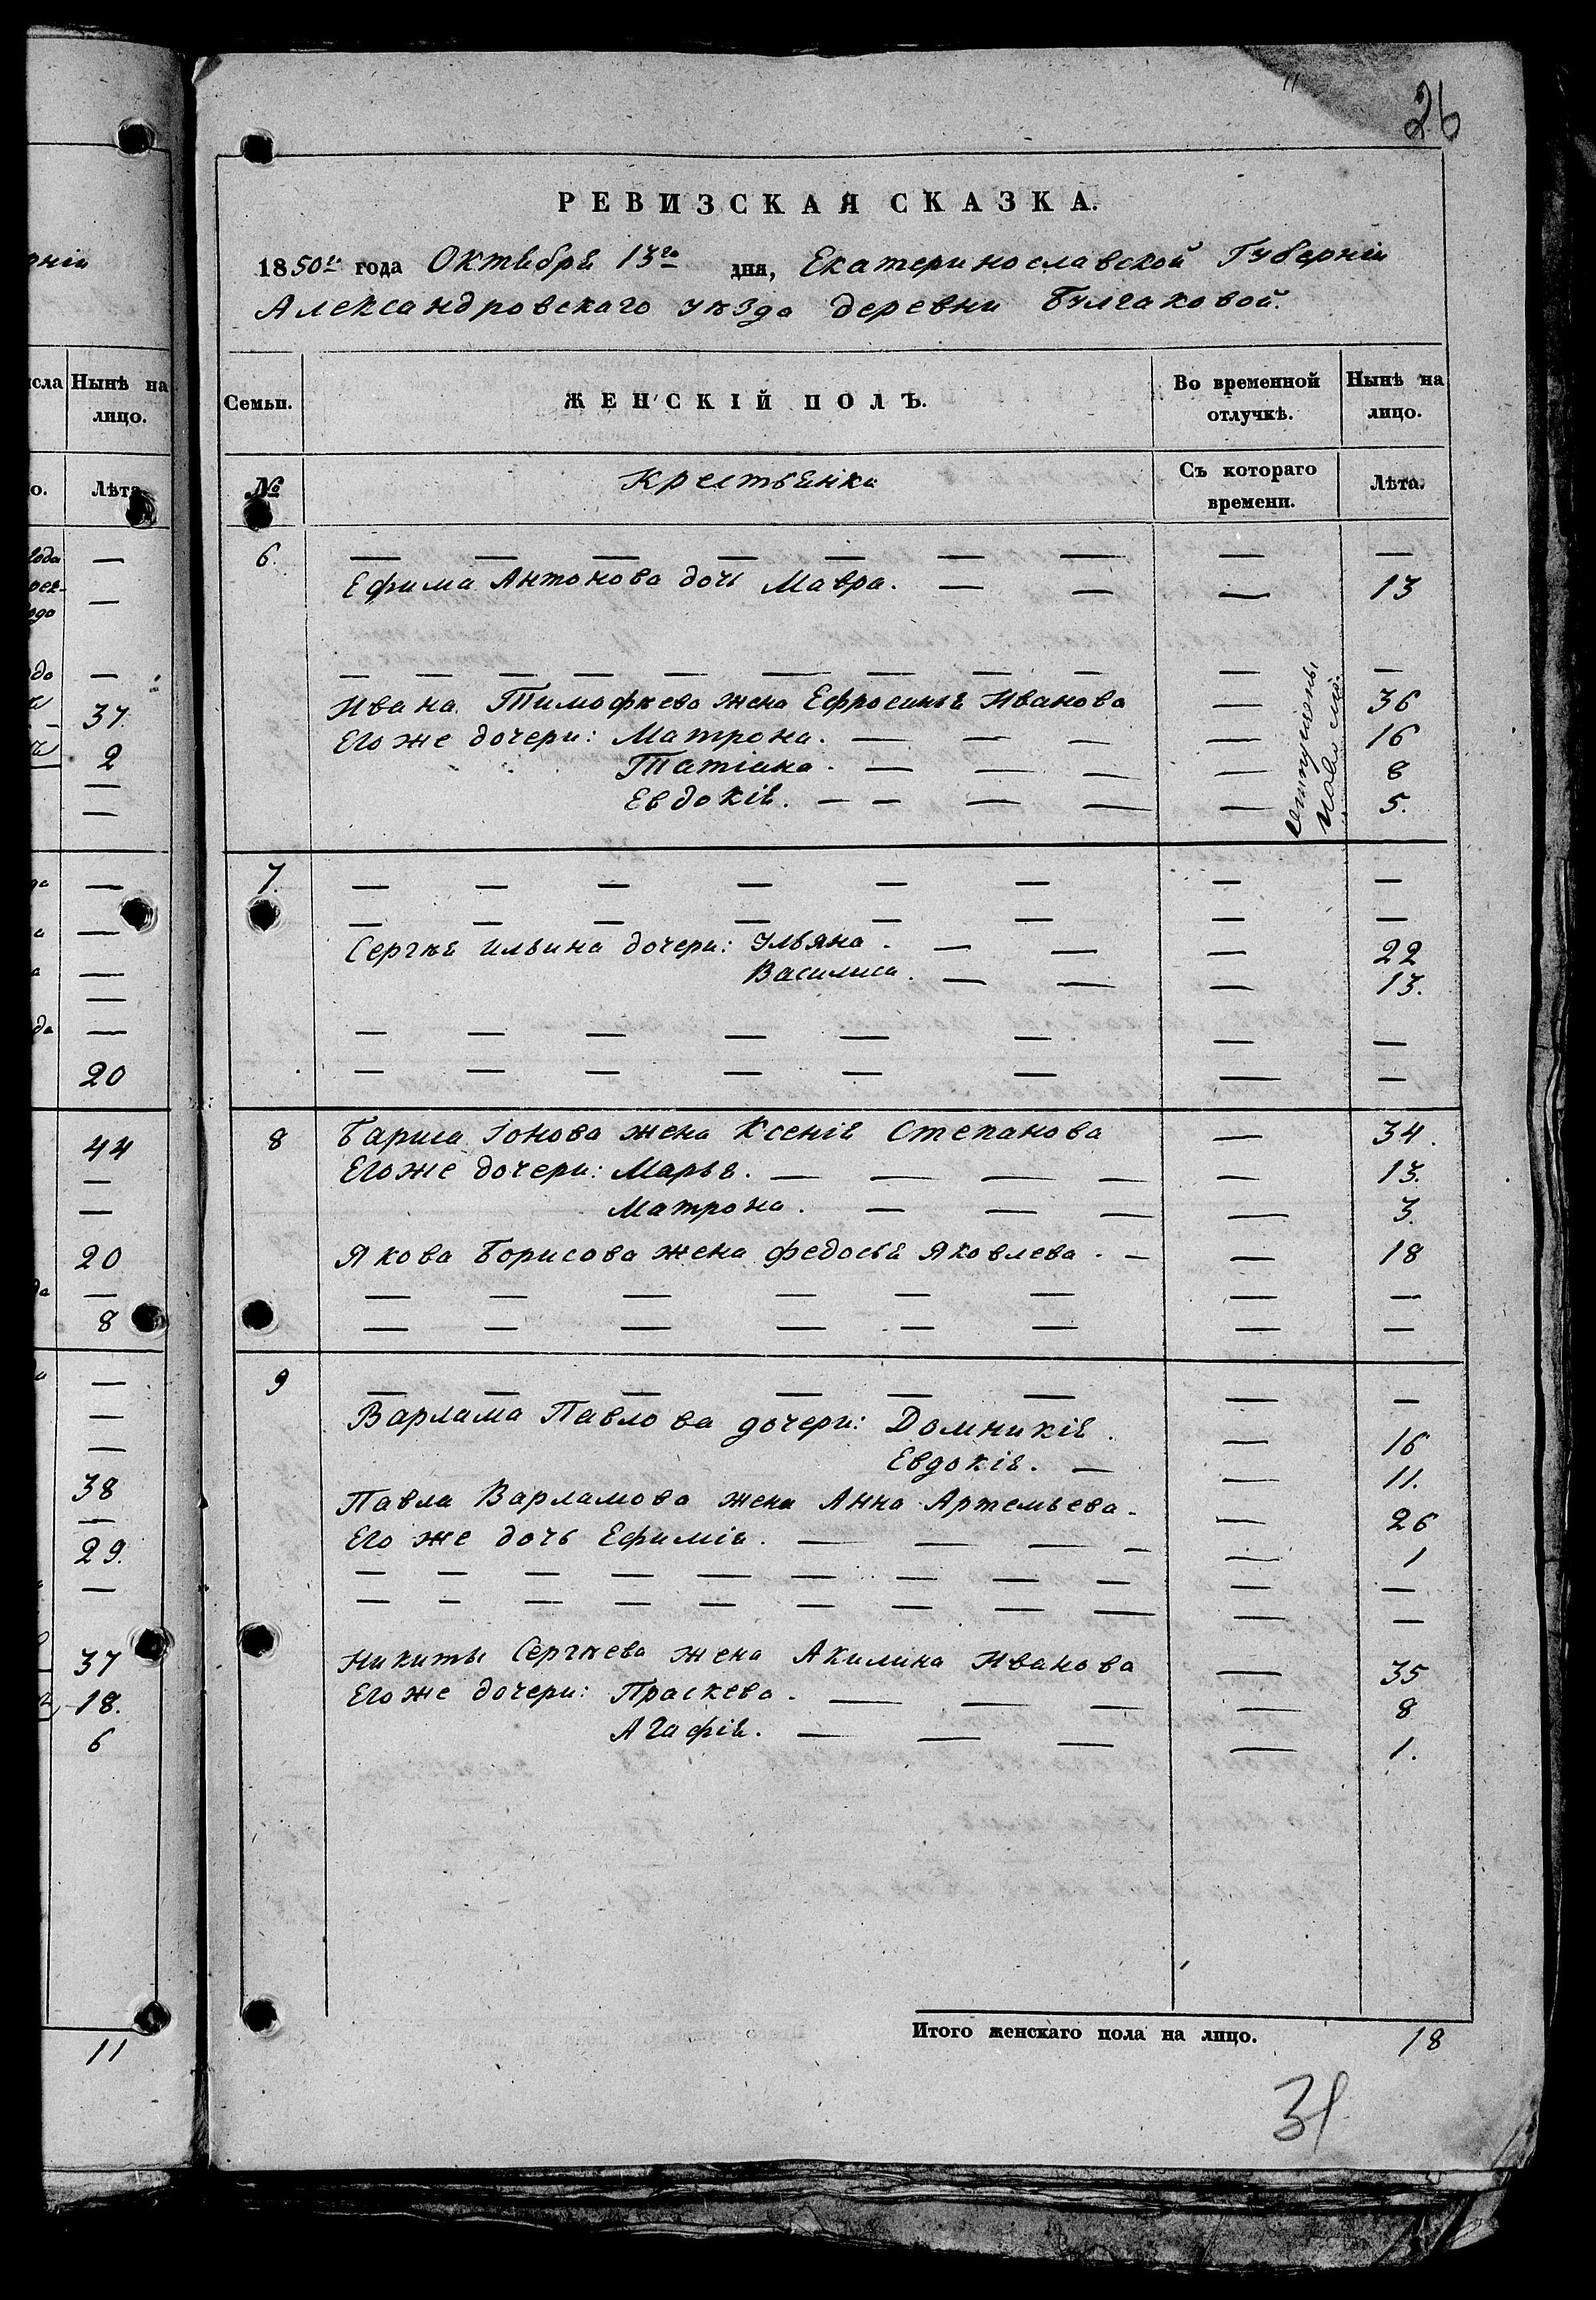 26
РЕВИЗСКАЯ СКАЗКА.
1850го года Октября 13го дня, Екатеринославской Губерніи
Александровскаго уѣзда деревни Булгаковой.
Нынѣ на лицо.
Лѣта
—
—
—
37.
2
—
—
—
—
—
—
—
20
44
—
—
20
—
8
—
—
—
38
—
29.
—
37
18.
6
11
Семьи. ЖЕНСКІЙ ПОЛЪ. Во временной отлучкѣ. Нынѣ на лицо.
№ Крестьянка Съ котораго времени. Лѣта.
6. — — — — — — — — —
Ефима Антонова дочь Мавра. — — — 13
— — — — — — — — — — —
Ивана Тимофѣева жена Ефросинья Иванова — 36
Его же дочери: Матрона. — — — — 16
Татіана. — — — — 8
Евдокія. — — — — — 5.
7. — — — — — — — —
— — — — — — — —
Сергѣя Ильина дочери: Ульяна. — — — 22
Василиса. — — — 13.
— — — — — — — —
— — — — — — — —
8 Бариса Іонова жена Ксенія Степанова — 34.
Его же дочери: Марья. — — — — — 13.
Матрона. — — — — 3.
Якова Борисова жена Федосья Яковлева. — — 18
— — — — — — — —
— — — — — — — —
9 — — — — — — — —
Варлама Павлова дочери: Домникія. — 16
Евдокія. — — 11.
Павла Варламова жена Анна Артемьева. — 26
Его же дочь Ефимія. — — — — — 1
— — — — — — — — — — —
— — — — — — — — — — —
Никиты Сергѣева жена Акилина Иванова — 35
Его же дочери: Праскева. — — — — 8
Агафія. — — — — 1.
Итого женскаго пола на лицо. 18
31